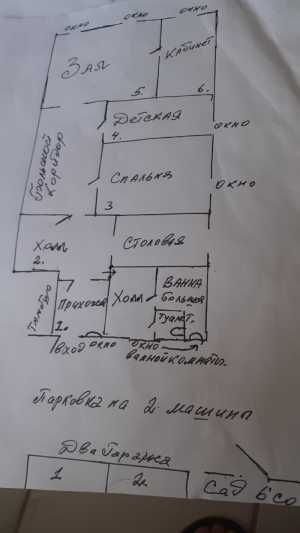 окно окно окно
Зал
Кабинет
5. 6.
Детская
4.
окно
Большой
коридор
Спальня
окно
3
Холл
2.
Столовая
Прихожая
1.
Холл
Ванна
большая
Туалет.
вход окно окно
ванной комнаты.
Парковка на 2 машины
Два Гаража
1 2.
Сад 6 со